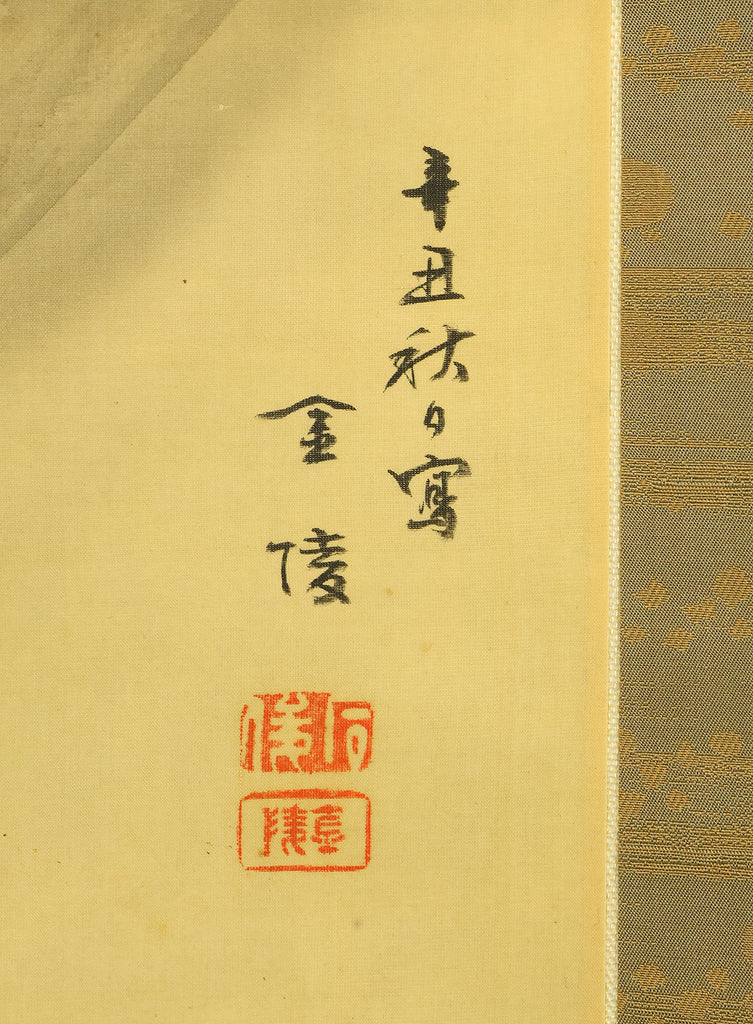 辛丑秋日寫
金陵